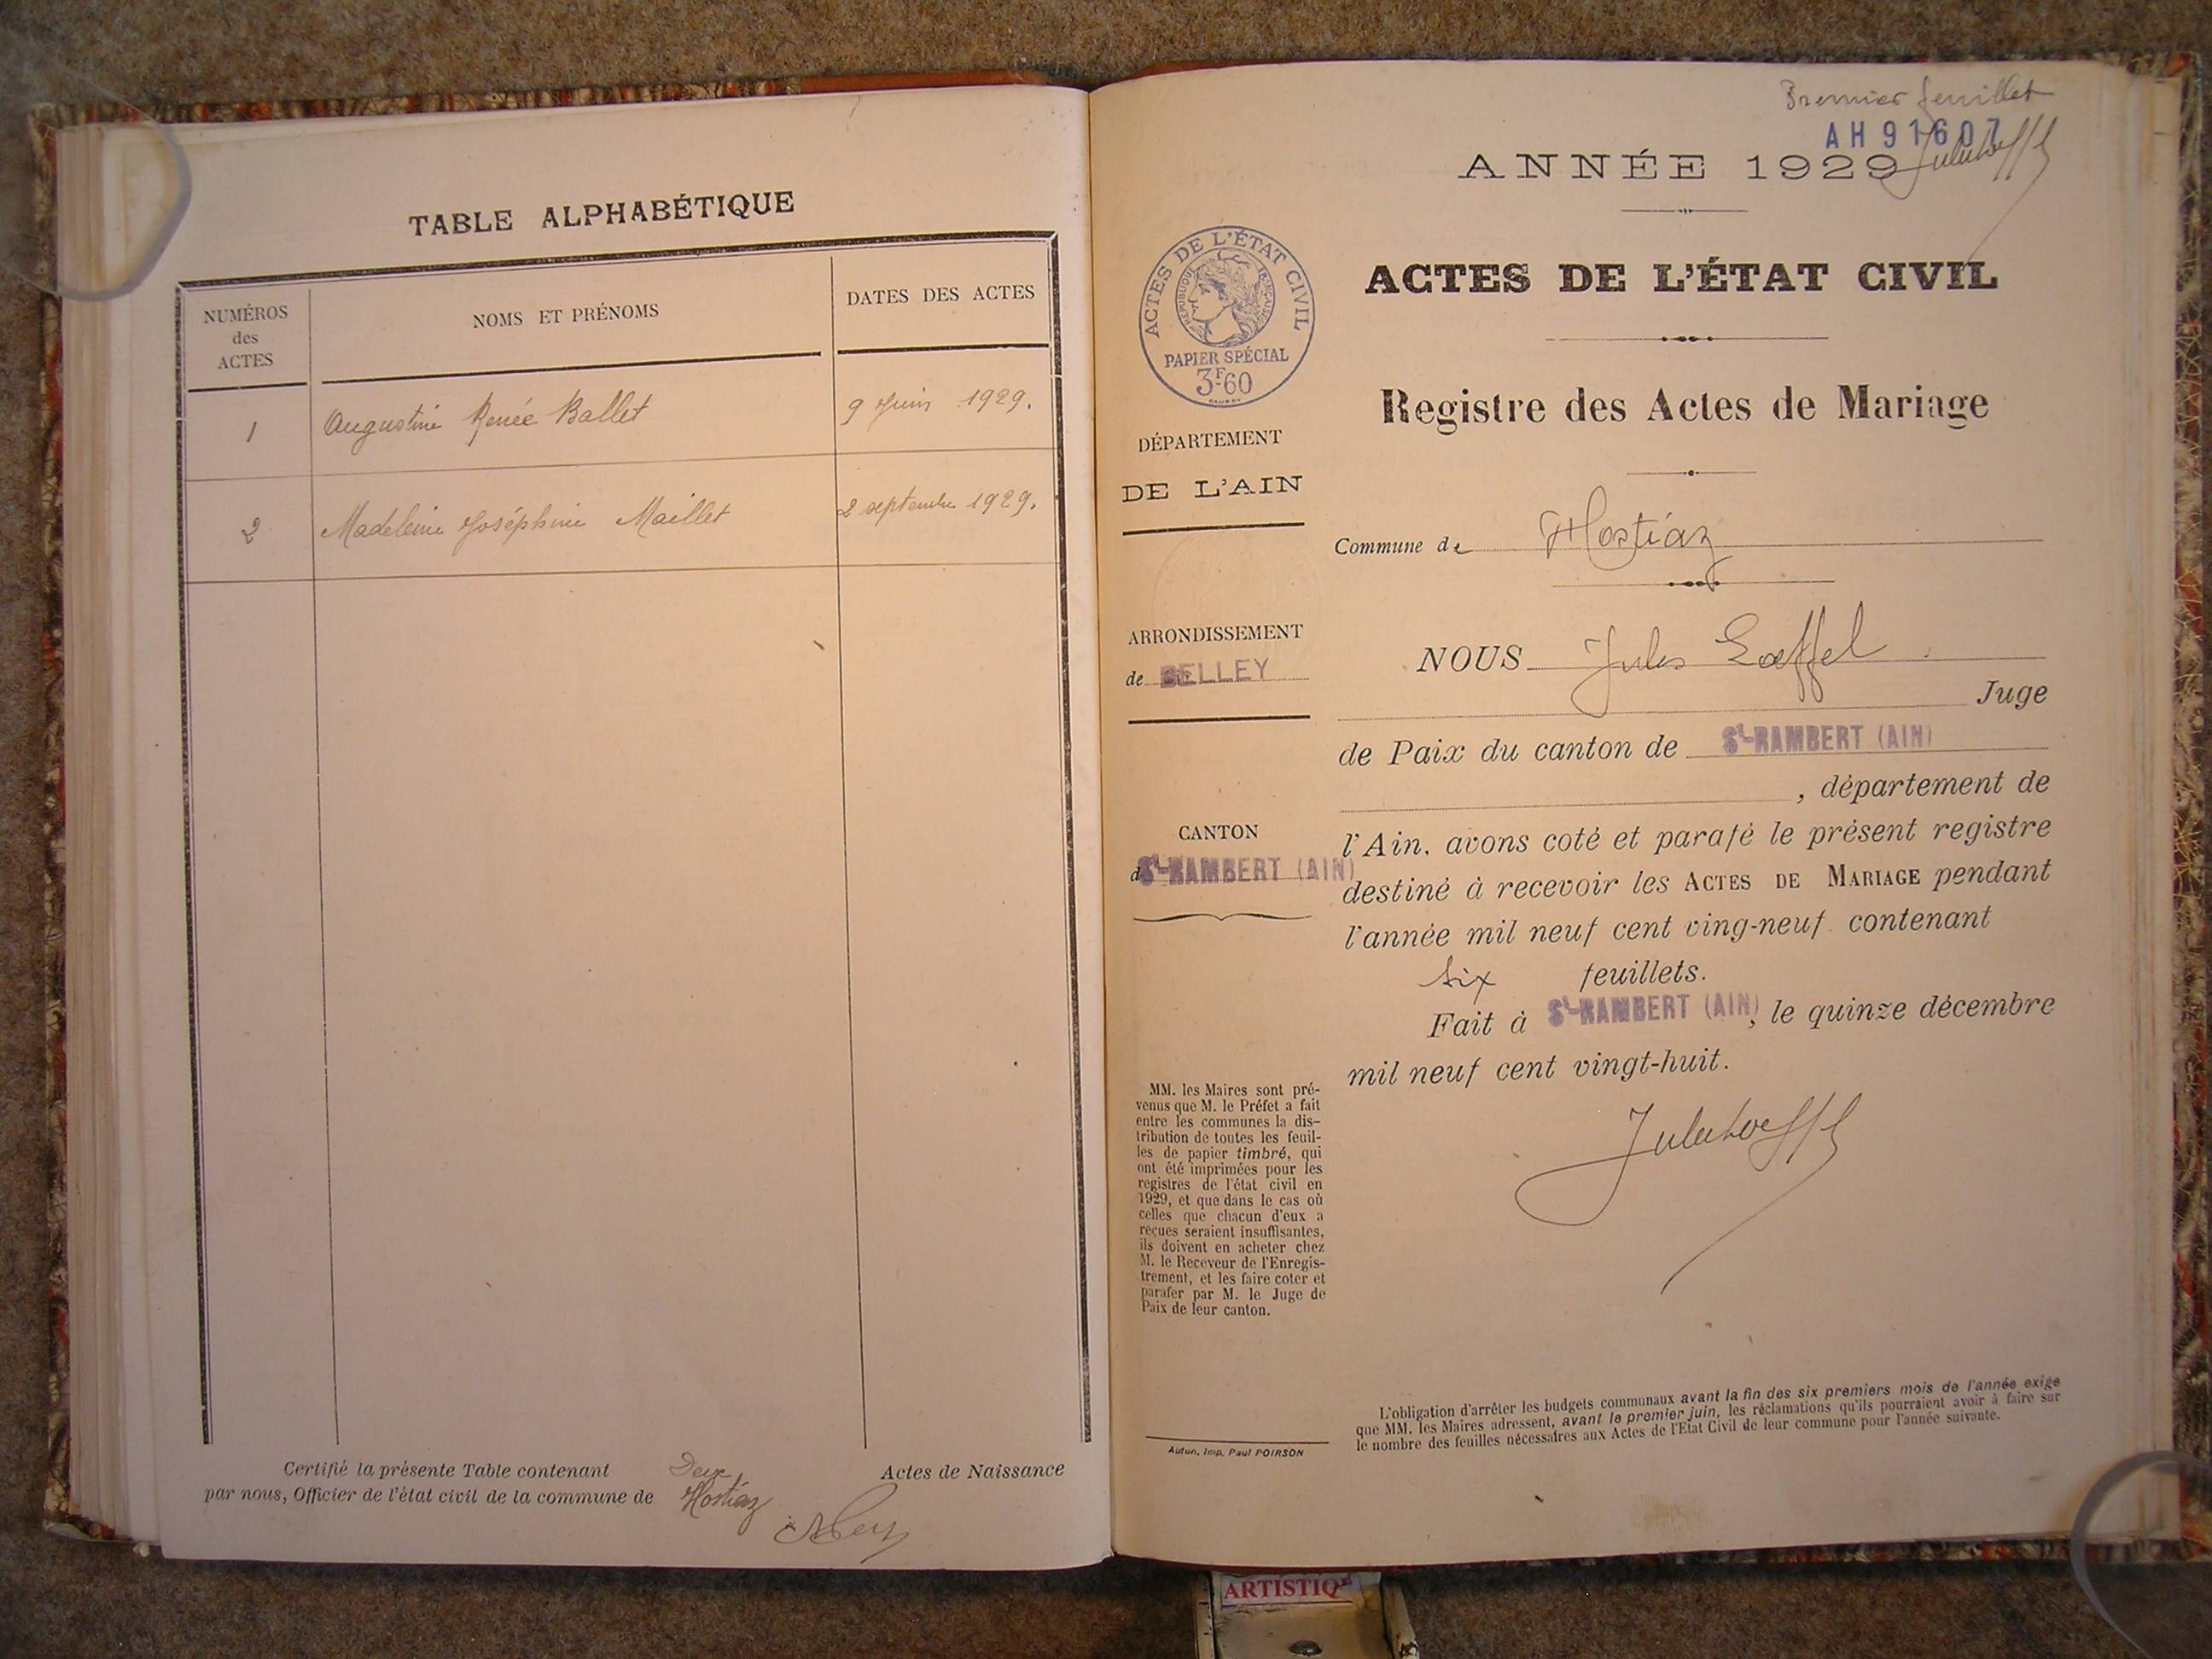 TABLE ALPHABÉTIQUE
NUMÉROS
des
ACTES
NOMS ET PRÉNOMS
DATES DES ACTES
1 Augustine Renée Ballet 9 Juin 1929.
2 Madeleine Joséphine Maillet 2 septembre 1929.
Certifié la présente Table contenant Deux Actes de Naissance
par nous, Officier de l'état civil de la commune de Hostiaz
Premier feuillet
AH 91607
ANNÉE 1929
ACTES DE L'ÉTAT CIVIL
RÉPUBLIQUE FRANÇAISE
PAPIER SPÉCIAL
3F60
DÉPARTEMENT
DE L'AIN
ARRONDISSEMENT
de BELLEY
CANTON
de St-RAMBERT (AIN)
MM. les Maires sont pré-
venus que M. le Préfet a fait
entre les communes la dis-
tribution de toutes les feuil-
les de papier timbré, qui
ont été imprimées pour les
registres de l'état civil en
1929, et que dans le cas où
celles que chacun d'eux a
reçues seraient insuffisantes,
ils doivent en acheter chez
M. le Receveur de l'Enregis-
trement, et les faire coter et
parafer par M. le Juge de
Paix de leur canton.
Autun, Imp. Paul POIRSON
ACTES DE L'ÉTAT CIVIL
Registre des Actes de Mariage
Commune de Hostiaz
NOUS Jules Loeffel
Juge
de Paix du canton de St-RAMBERT (AIN)
, département de
l'Ain, avons coté et parafé le présent registre
destiné à recevoir les ACTES DE MARIAGE pendant
l'année mil neuf cent ving-neuf contenant
six feuillets.
Fait à St-RAMBERT (AIN), le quinze décembre
mil neuf cent vingt-huit.
Jules Loeffel
L'obligation d'arrêter les budgets communaux avant la fin des six premiers mois de l'année exige
que MM. les Maires adressent, avant le premier juin, les réclamations qu'ils pourraient avoir à faire sur
le nombre des feuilles nécessaires aux Actes de l'Etat Civil de leur commune pour l'année suivante.
ARTISTIQ